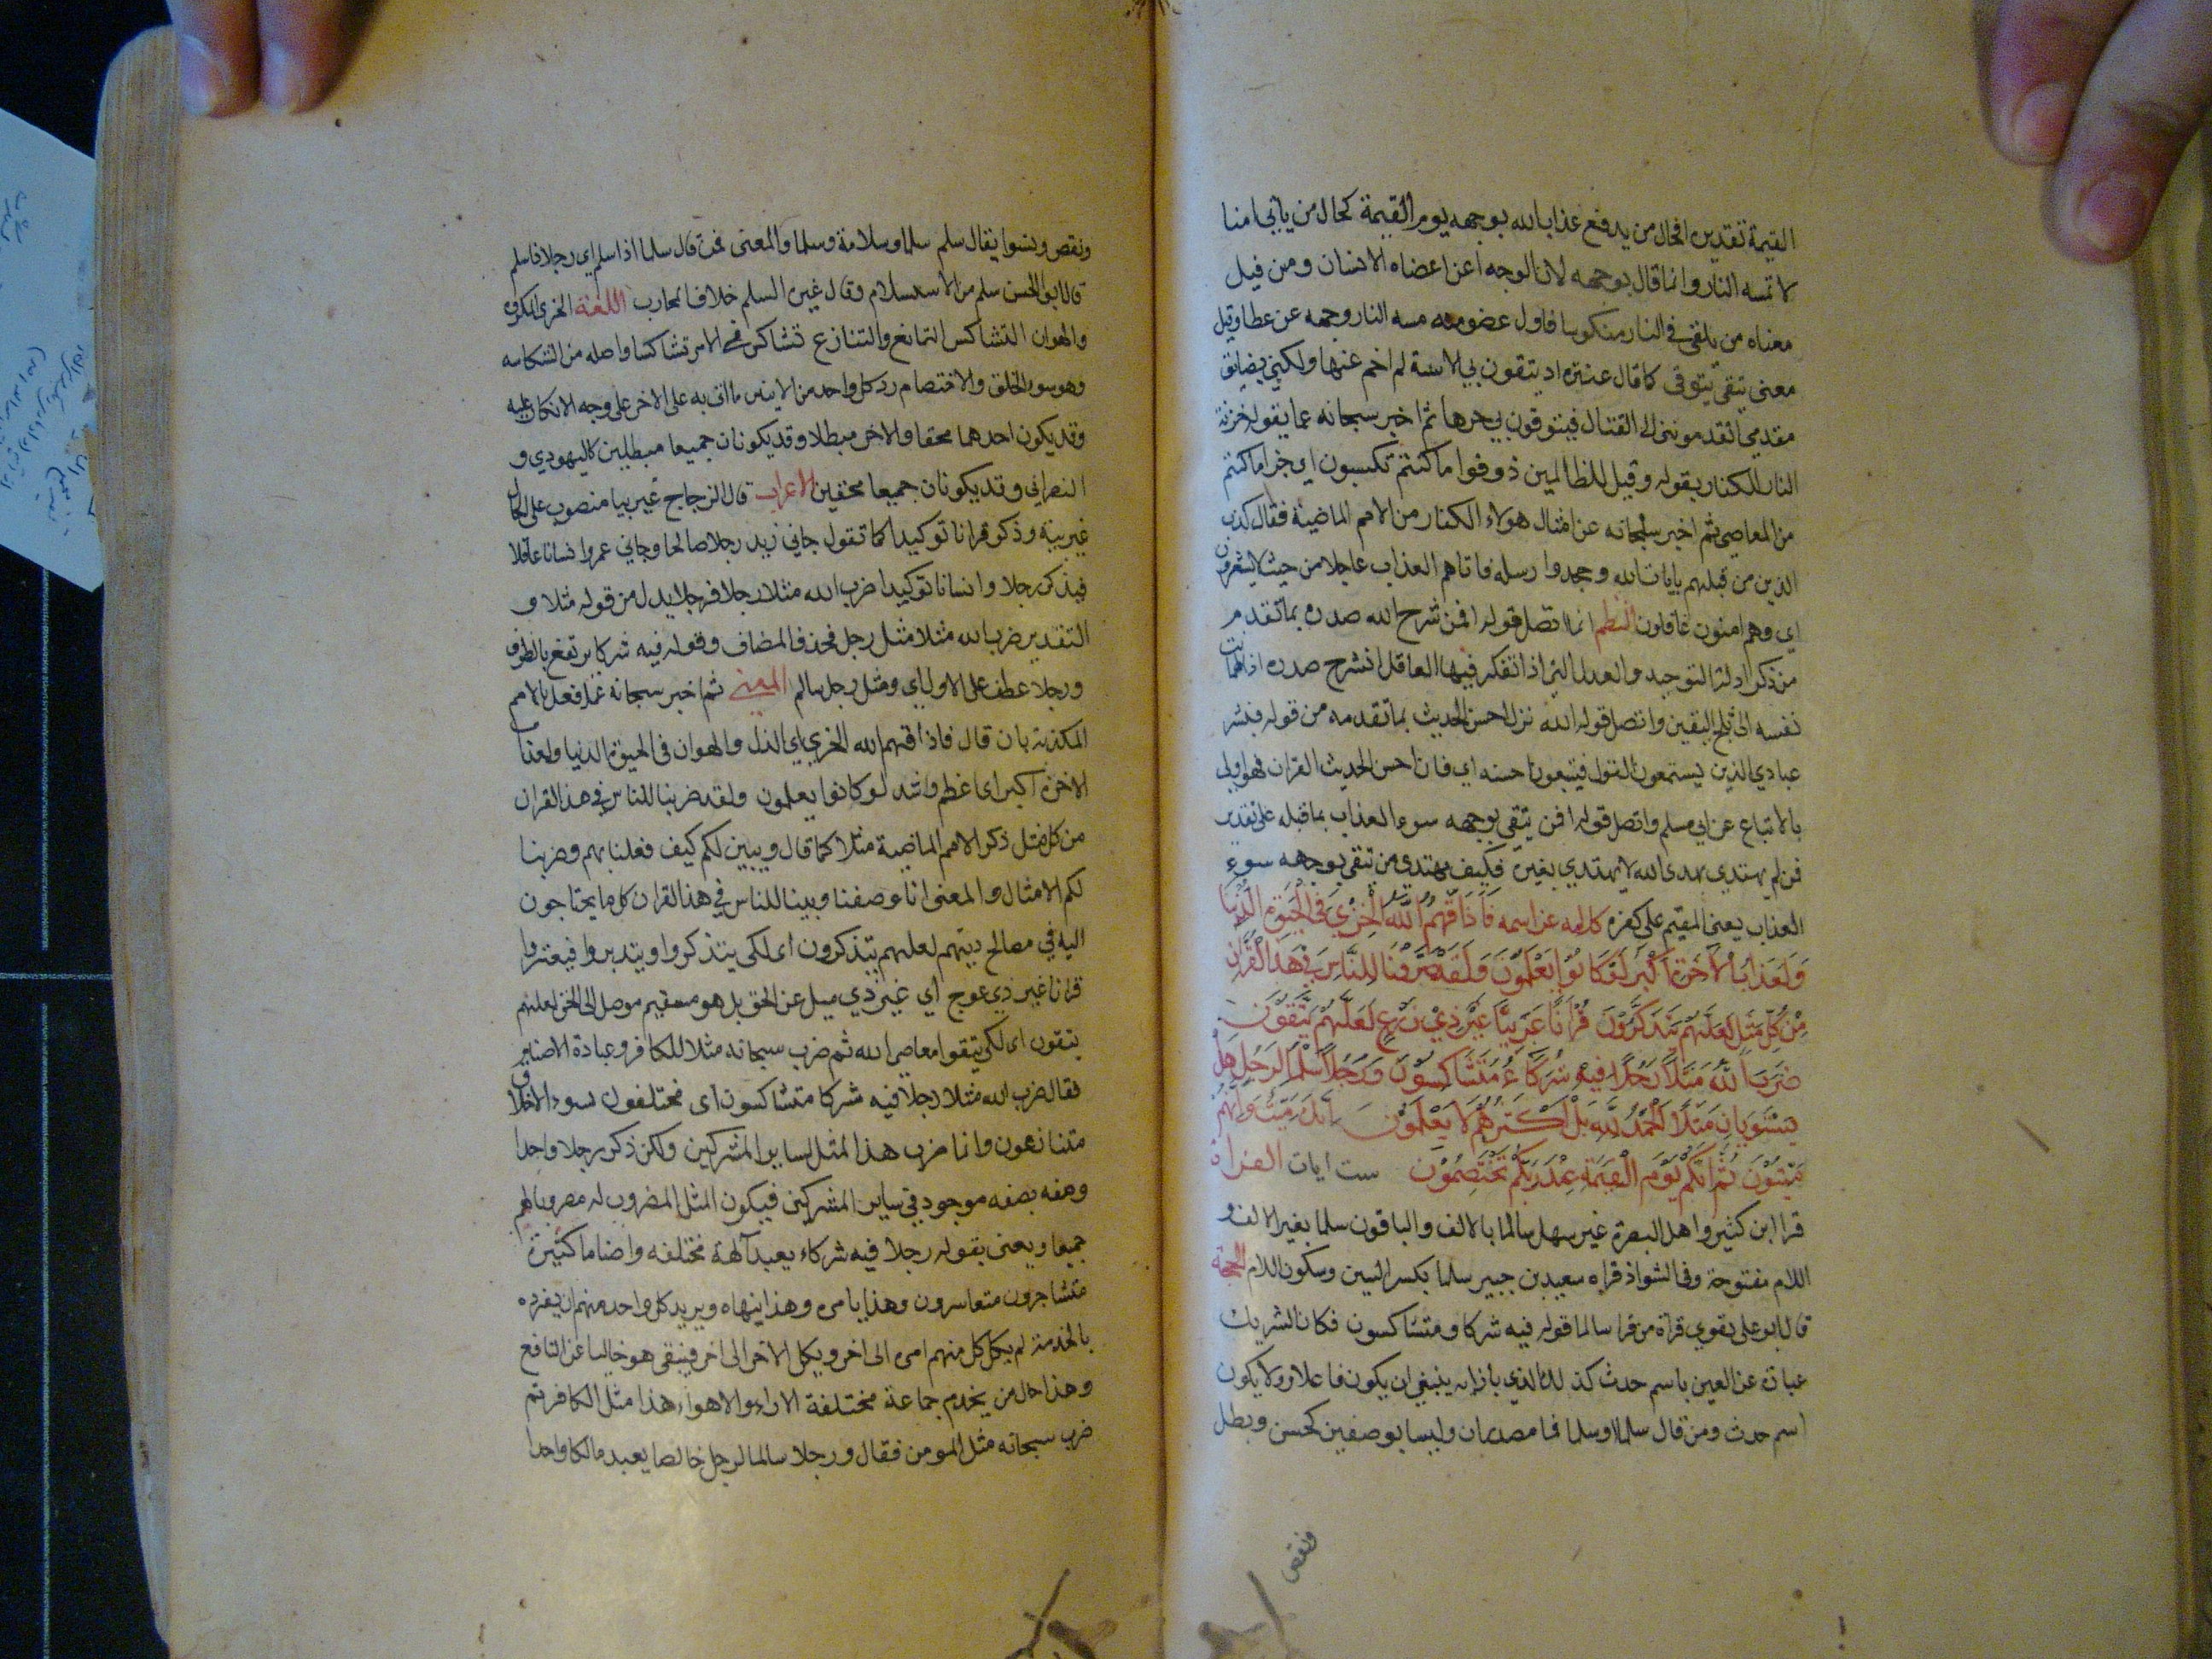 القيمة تقديره افحال من يدفع عذاب الله بوجهه يوم القيمة كحال من ياتي امنا
لا تمسه النار وانما قال بوجهه لان الوجه اعز اعضاء الانسان ومن قيل
معناه من يلقى في النار منكوسا فاول عضو منه مسه النار وجهه عن عطا وقيل
معنى يتقي يتوقى كما قال عنتره اذ يتقون بي الاسنة لم اخم عنها ولكني تضايق
مقدمي اي يقدمونني الى القتال فيتوقون بي حرها ثم اخبر سبحانه عما يقوله خزنة
النار للكفار بقوله وقيل للظالمين ذوقوا ما كنتم تكسبون اي جزا ما كنتم
من المعاصي ثم اخبر سبحانه عن امثال هولاء الكفار من الامم الماضية فقال كذب
الذين من قبلهم بايات الله وجحدوا رسله فاتاهم العذاب عاجلا من حيث لا يشعرون
اي وهم امنون غافلون النظم انما اتصل قوله افمن شرح الله صدره بما تقدم
من ذكر ادلة التوحيد والعدل التي اذا تفكر فيها العاقل انشرح صدره اذا اطمانت
نفسه الى ثلج اليقين واتصل قوله الله نزل احسن الحديث بما تقدمه من قوله فبشر
عبادي الذين يستمعون القول فيتبعون احسنه اي فان احسن الحديث القران فهو اولى
بالاتباع عن ابي مسلم واتصل قوله افمن يتقي بوجهه سوء العذاب بما قبله على تقدير
فمن لم يهتدي بهدى الله لا يهتدي بغيره فكيف يهتدي من تتقي بوجهه سوء
العذاب يعني المقيم على كفره كلامه عز اسمه فَاَذَاقَهُمُ اللَّهُ الْخِزْيَ فِي الْحَيٰوةِ الدُّنْيَا
وَلَعَذَابُ الْاٰخِرَةِ اَكْبَرُ لَوْ كَانُوْا يَعْلَمُوْنَ وَلَقَدْ ضَرَبْنَا لِلنَّاسِ فِيْ هٰذَا الْقُرْاٰنِ
مِنْ كُلِّ مَثَلٍ لَعَلَّهُمْ يَتَذَكَّرُوْنَ قُرْاٰنًا عَرَبِيًّا غَيْرَ ذِيْ عِوَجٍ لَعَلَّهُمْ يَتَّقُوْنَ
ضَرَبَ اللَّهُ مَثَلًا رَجُلًا فِيْهِ شُرَكَاءُ مُتَشَاكِسُوْنَ وَرَجُلًا سَلَمًا لِرَجُلٍ هَلْ
يَسْتَوِيَانِ مَثَلًا اَلْحَمْدُ لِلَّهِ بَلْ اَكْثَرُهُمْ لَا يَعْلَمُوْنَ اِنَّكَ مَيِّتٌ وَاِنَّهُمْ
مَيِّتُوْنَ ثُمَّ اِنَّكُمْ يَوْمَ الْقِيٰمَةِ عِنْدَ رَبِّكُمْ تَخْتَصِمُوْنَ ست ايات القراة
قرا ابن كثير واهل البصرة غير سهل سالما بالالف والباقون سلما بغير الالف و
اللام مفتوحة وفي الشواذ قراه سعيد بن جبير سلما بكسر السين وسكون اللام الحجة
قال ابو علي يقوي قراة من قرا سالما قوله فيه شركا ومتشاكسون فكما ان الشريك
عبارة عن العين باسم حدث كذلك الذي بازائه ينبغي ان يكون فاعلا ولا يكون
اسم حدث ومن قال سلما وسلما فهما مصدران وليسا بوصفين كحسن وبطل
ونقص
ونقص ونسوا يقال سلم سلما وسلامة وسلما والمعنى فمن قال سلما اذا سلم اي رجلا فا سلم
قال ابو الحسن سلم من الاستسلام وقال غيره السلم خلاف المحارب اللغة الخزي المكروه
والهوان التشاكس التمانع والتنازع تشاكسوا في الامر تشاكسا واصله من الشكاسه
وهو سوء الخلق والاختصام رد كل واحد من الاثنين ما اتى به على الاخر على وجه الانكار عليه
وقد يكون احدهما محقا والاخر مبطلا وقد يكونان جميعا مبطلين كاليهودي و
النصراني وقد يكونان جميعا محقين الاعراب قال الزجاج عربيا منصوب على الحال
غير بينه وذكر قرانا توكيدا كما تقول جاني زيد رجلا صالحا وجاني عمرو انسانا عاقلا
فيذكر رجلا وانسانا توكيدا ضرب الله مثلا رجلا فرجلا بدل من قوله مثلا و
التقدير ضرب الله مثلا مثل رجل فحذف المضاف وقوله فيه شركا يرتفع بالظرف
ورجلا عطف على الاول اي ومثل رجل سالم المعنى ثم اخبر سبحانه عما فعله بالامم
المكذبة بان قال فاذاقهم الله الخزي اي الذل والهوان في الحيوة الدنيا ولعذاب
الاخرة اكبر اي اعظم واشد لو كانوا يعلمون ولقد ضربنا للناس في هذا القران
من كل مثل ذكر الامم الماضية مثلا كما قال ويبين لكم كيف فعلنا بهم وضربنا
لكم الامثال والمعنى انا وصفنا وبينا للناس في هذا القران كل ما يحتاجون
اليه في مصالح دينهم لعلهم يتذكرون اي لكي يتذكروا ويتدبروا فيعتبروا
قرانا غير ذي عوج اي غير ذي ميل عن الحق بل هو مستقيم موصل الى الحق لعلهم
يتقون اي لكي يتقوا معاصي الله ثم ضرب سبحانه مثلا للكافر وعبادة الاصنام
فقال ضرب الله مثلا رجلا فيه شركا متشاكسون اي مختلفون سوء الاخلاق
متنازعون وانما ضرب هذا المثل لساير المشركين ولكن ذكر رجلا واحدا
وصفه بصفه موجودة في ساير المشركين فيكون المثل المضروب له مضروبا لهم
جميعا ويعني بقوله رجلا فيه شركاء يعبد آلهة مختلفه واصناما كثيرة
متشاجرون متعاسرون وهذا يامره وهذا ينهاه ويريد كل واحد منهم ان يفرده
بالخدمة ثم يكل كل منهم امره الى اخر ويكل الاخر الى اخر فيبقى هو خاليا عن المنافع
وهذا حال من يخدم جماعة مختلفة الاراء والاهواء هذا مثل الكافر ثم
ضرب سبحانه مثل المومن فقال ورجلا سالما لرجل خالصا يعبد مالكا واحدا